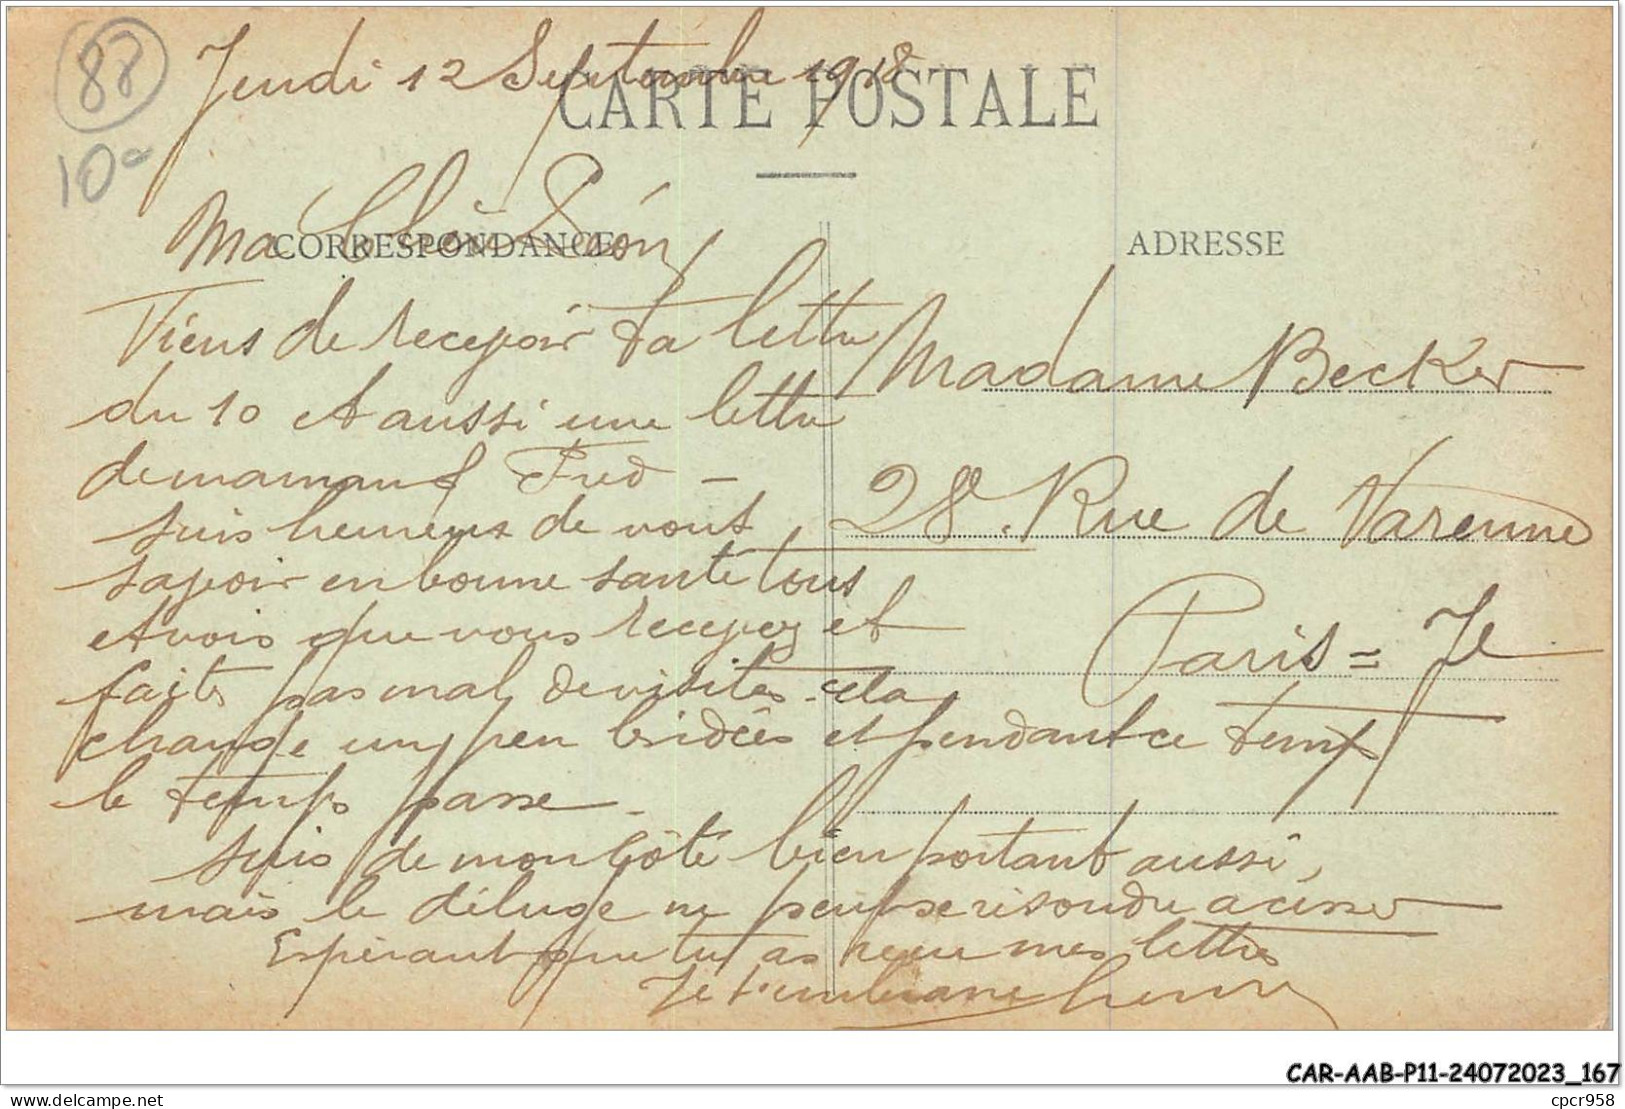 88
10
Jeudi 12 Septembre 1918
CARTE POSTALE
CORRESPONDANCE
ADRESSE
Ma Chère
Viens de recevoir ta lettre
du 10 et aussi une lettre
de maman f Fred -
suis heureux de vous
savoir en bonne santé tous
et vois que vous recevez et
faites pas mal de visites cela
change un peu les idées et pendant ce temps
le temps passe.
suis de mon côté bien portant aussi,
mais le déluge ne peut se résoudre a cesser
Espérant que tu as reçu mes lettres
Je t'embrasse henri
Madame Becker
28. Rue de Varenne
Paris = 7e
CAR-AAB-P11-24072023_167
delcampe.net
cpcr958